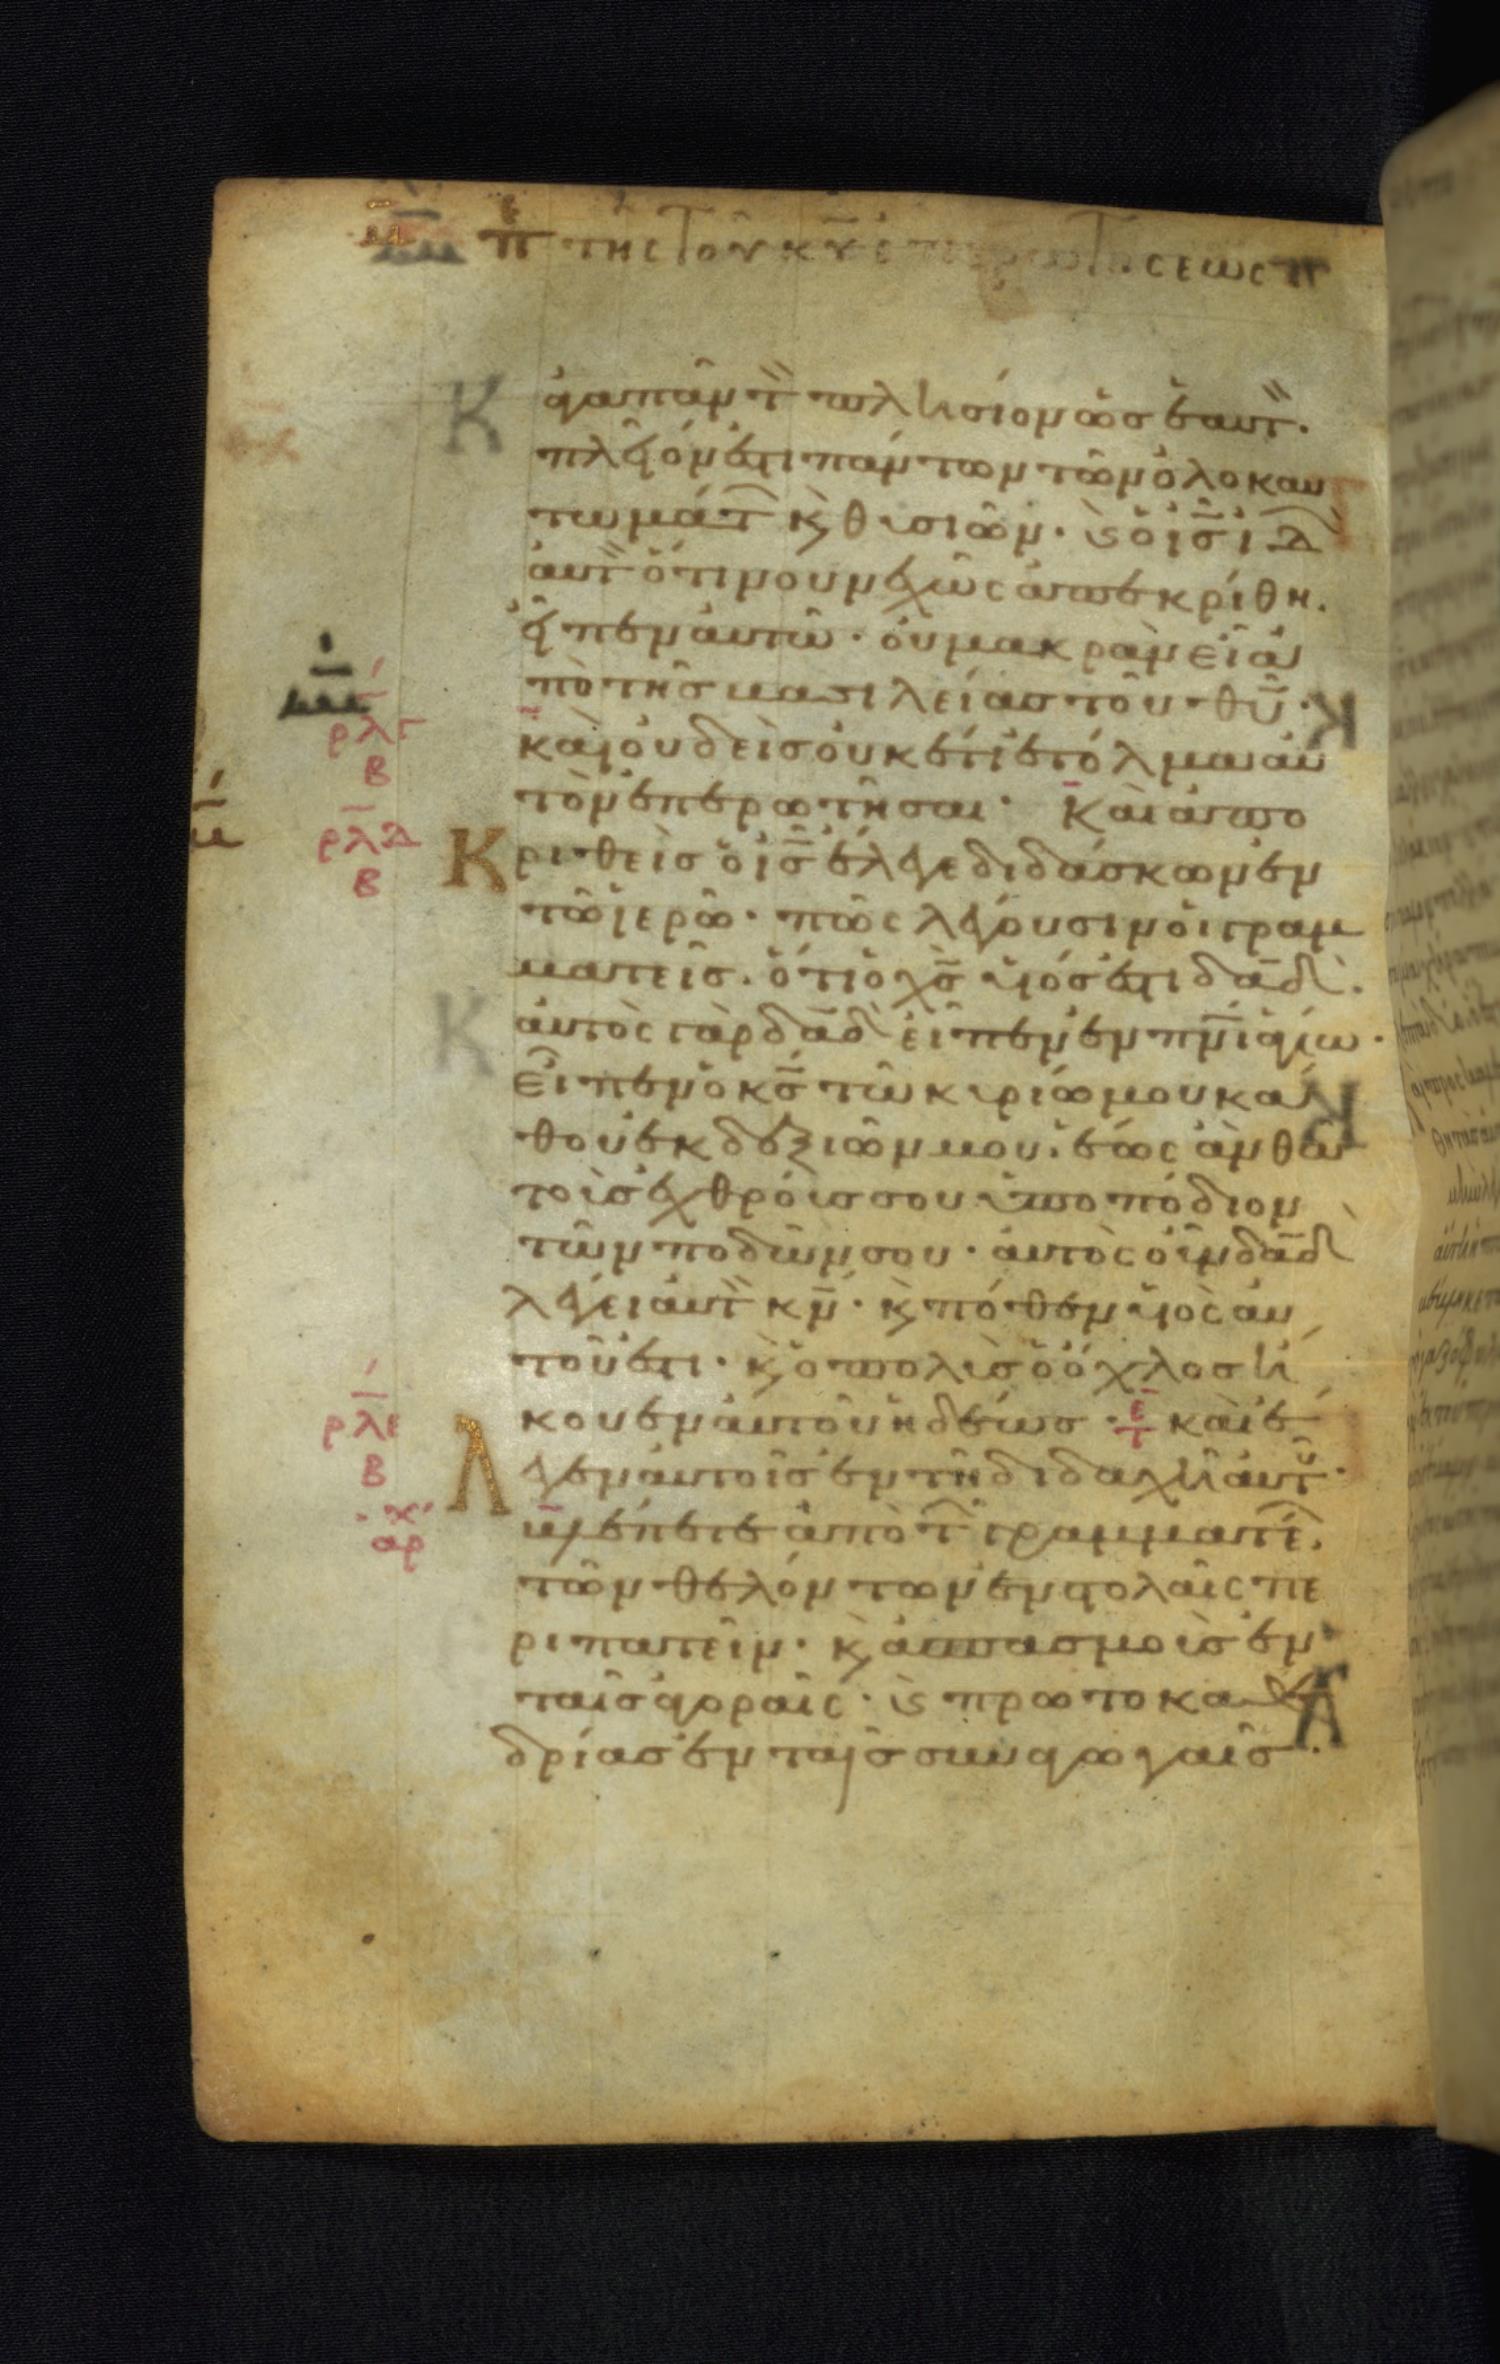 π της του κυ επερωτησεως π
αγαπᾶν τ πλησίον ὡς ἑαυτ.
πλεῖόν ἐστι πάντων τῶν ὁλοκαυ
τωμάτ κ θυσιῶν. κ ὁ ις ἰδ
αὐτ ὅτι νουνεχῶς ἀπεκρίθη.
εἶπεν αὐτῶ. οὐ μακρὰν εἶ ἀ
πὸ τῆς βασιλείας τοῦ θυ.
καὶ οὐδεὶς οὐκέτι ἐτόλμα αὐ
τὸν ἐπερωτῆσαι. Καὶ ἀπο
κριθεὶς ὁ ις ἔλεγε διδάσκων ἐν
τῶ ἱερῶ. πῶς λέγουσιν οἱ γραμ
ματεῖς. ὅτι ὁ χς υἱός ἐστι δαδ.
αὐτὸς γὰρ δαδ εἶπεν ἐν πνι ἁγίω.
εἶπεν ὁ κς τῶ κυρίω μου κά
θου ἐκ δεξιῶν μου. ἕως ἂν θῶ
τοὺς ἐχθρούς σου ὑποπόδιον
τῶν ποδῶν σου. αὐτὸς οὖν δαδ
λέγει αὐτ κν. κ πόθεν υἱὸς αὐ
τοῦ ἐστι. κ ὁ πολὺς ὁ ὄχλος ἤ
κουεν αὐτοῦ ἡδέως. καὶ ἔ
λεγεν αὐτοῖς ἐν τῆ διδαχῆ αὐτ.
βλέπετε ἀπὸ τ γραμματέ.
τῶν θελόντων ἐν στολαῖς πε
ριπατεῖν. κ ἀσπασμοὺς ἐν
ταῖς ἀγοραῖς. κ πρωτοκαθε
δρίας ἐν ταῖς συναγωγαῖς.
ρλγ
β
ρλδ
β
ρλε
β
αρ